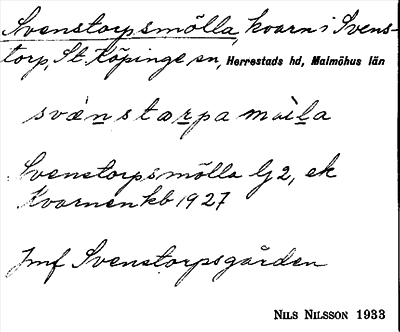 Svenstorpsmölla, kvarn i Svens-
torp, St. Köpinge sn, Herrestads hd, Malmöhus län
svænstarpa
Svenstorpsmölla lj 2, ek
Kvarnen kb 1927
Jmf Svenstorpsgården
NILS NILSSON 1933